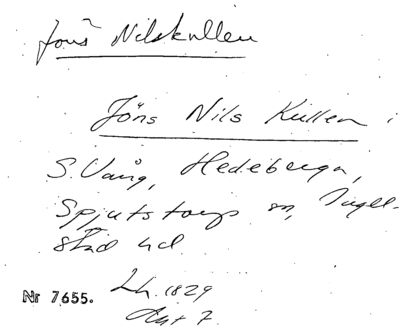 Jöns Nilskullen
Jöns Nils Kullen i
S. Vång, Hedeberga,
Spjutstorps sn, Ingel-
stad hd
Lh. 1829
Akt 7.
Nr 7655.